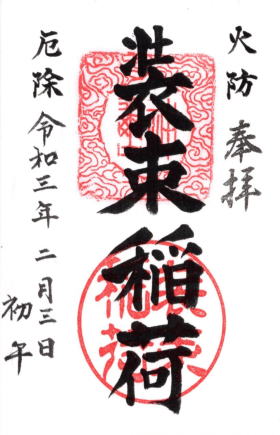 火防 奉拝
装束稲荷
厄除 令和三年 二月三日
初午